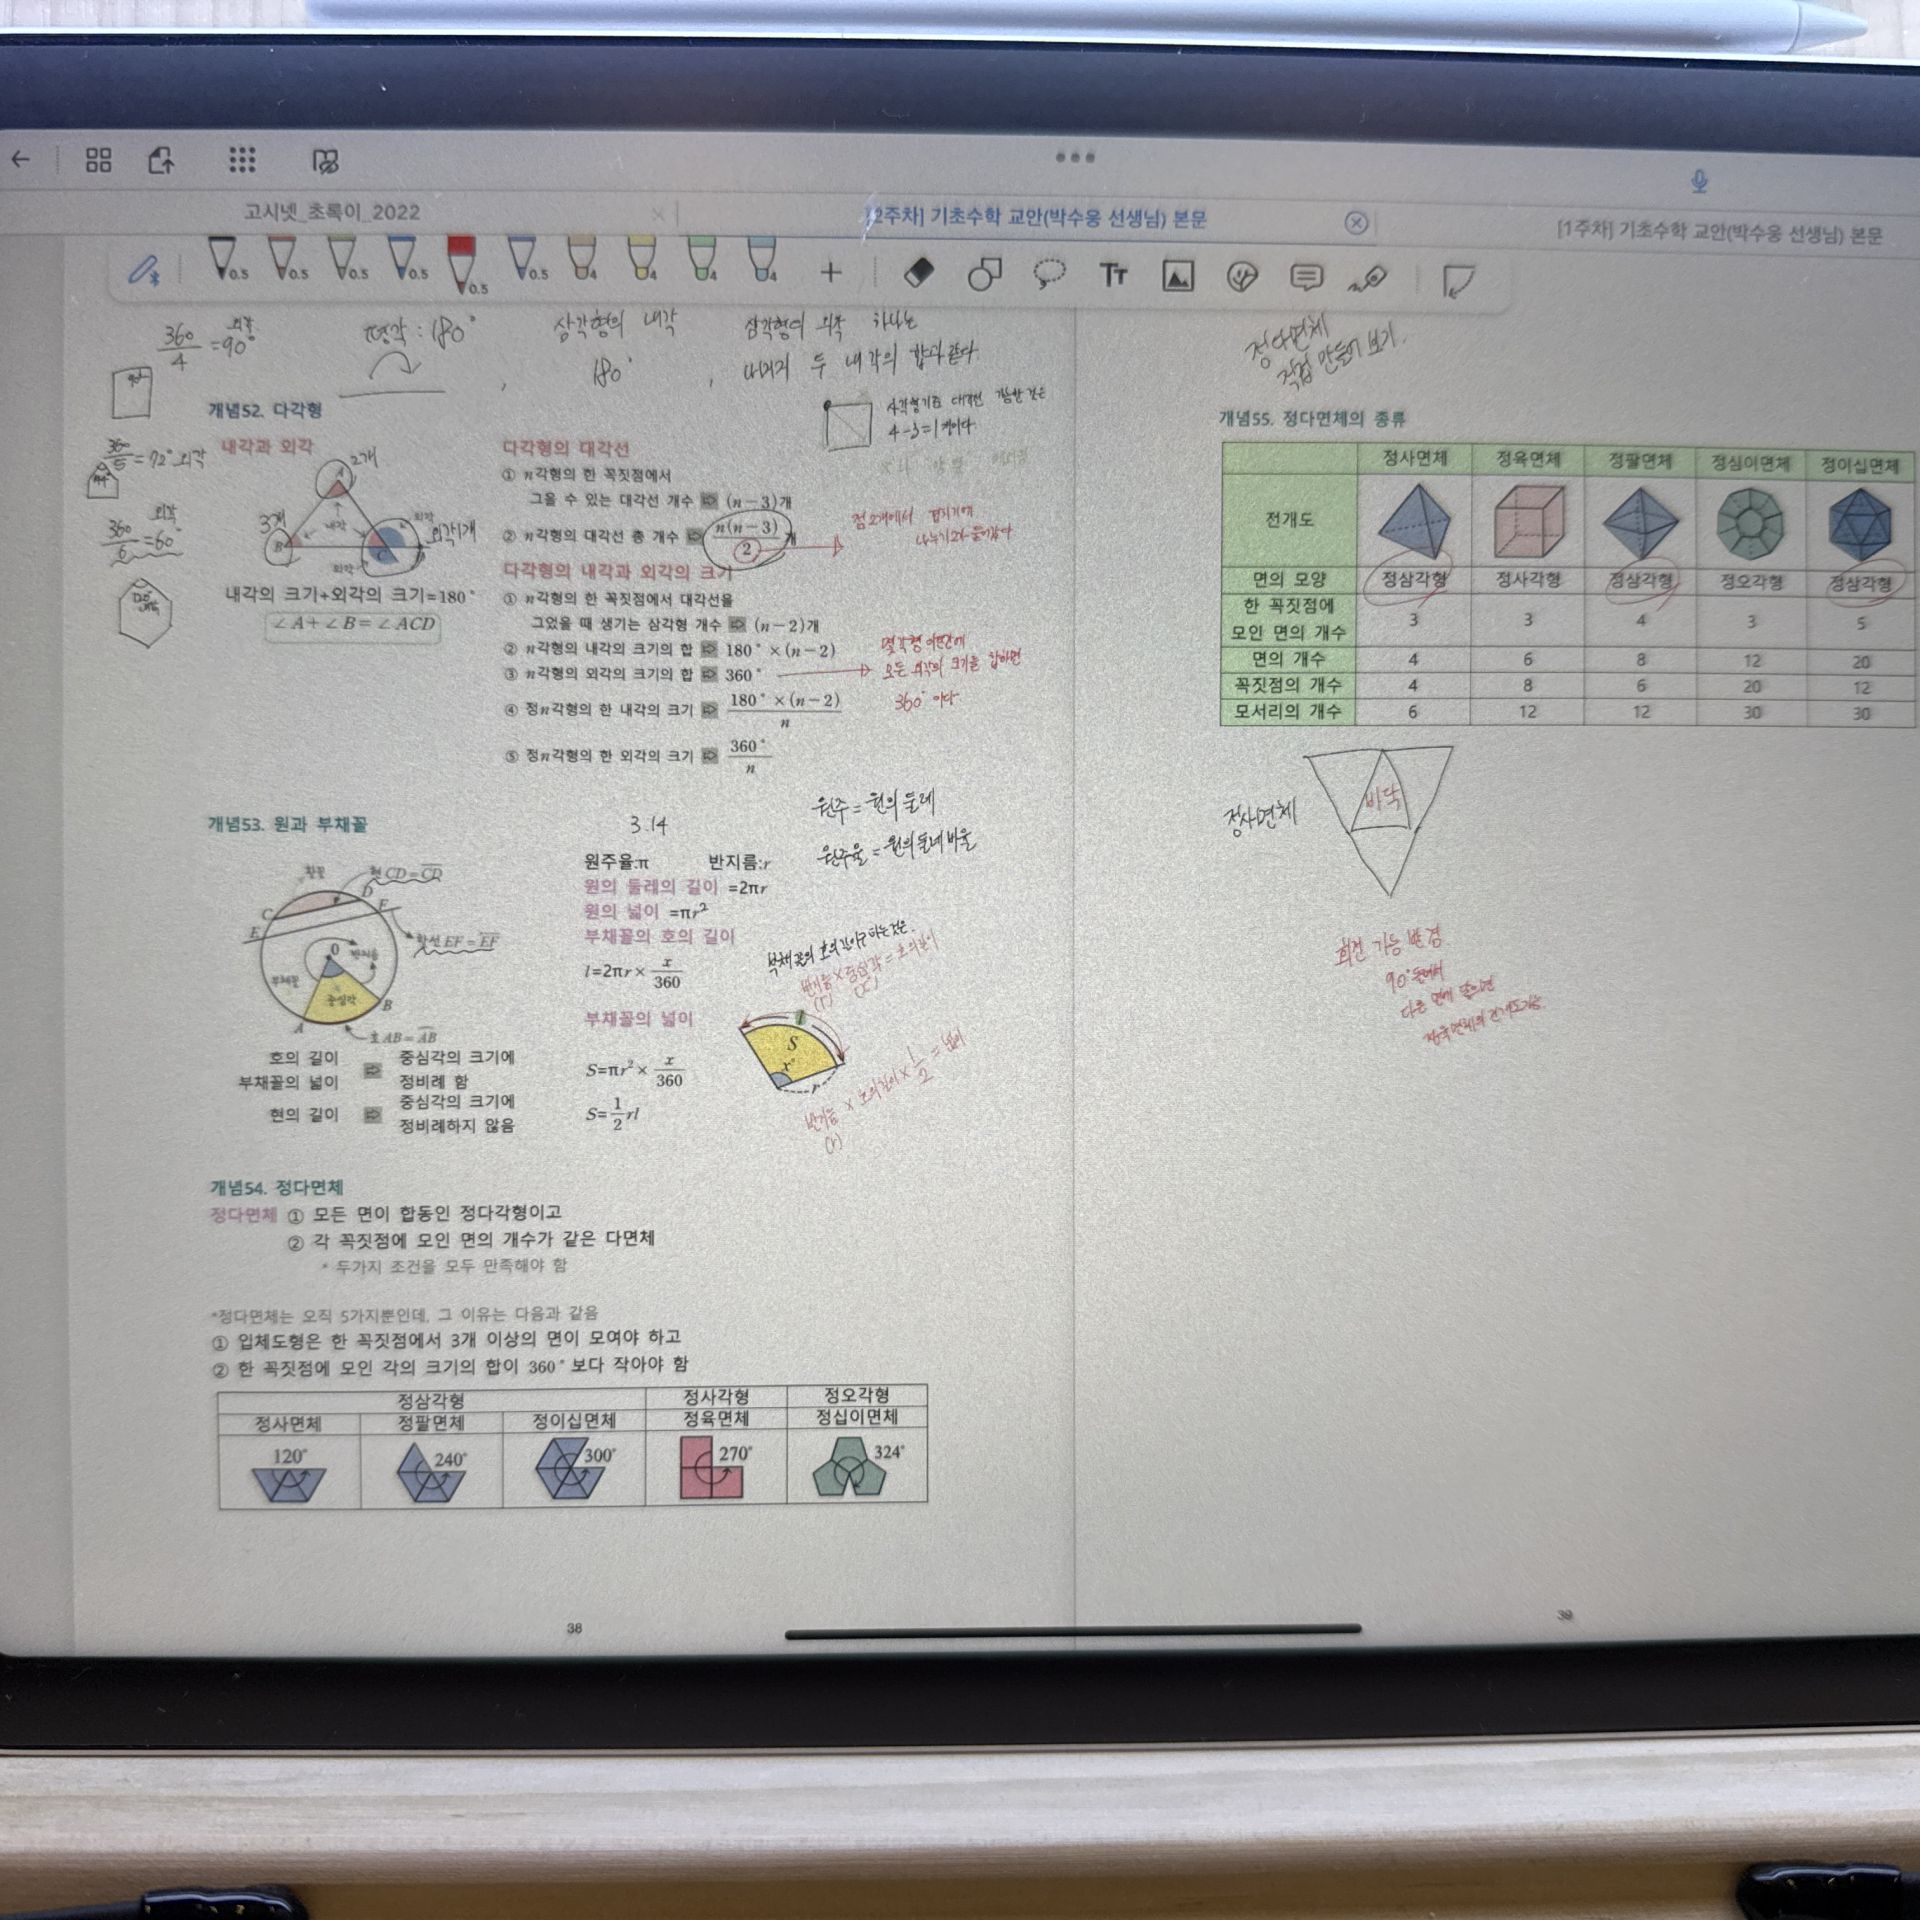 고시넷_초록이_2022
[2주차] 기초수학 교안(박수웅 선생님) 본문
[1주차] 기초수학 교안(박수웅 선생님) 본문
0.5 0.5 0.5 0.5 0.5 0.5 4 4 4 4
360/4 = 90° 외각
평각 : 180°
삼각형의 내각
180°
삼각형의 외각 하나는
나머지 두 내각의 합과 같다.
4각형기준 대각선 가능한 것은
4-3=1개이다
개념52. 다각형
360/5 = 72° 외각
360/6 = 60° 외각
내각과 외각
A 2개
3개 B
내각
외각
C
외각
외각1개
내각의 크기+외각의 크기=180°
∠A+∠B=∠ACD
다각형의 대각선
① n각형의 한 꼭짓점에서
그을 수 있는 대각선 개수 ⇨ (n-3)개
② n각형의 대각선 총 개수 ⇨ n(n-3)/2 개
다각형의 내각과 외각의 크기
① n각형의 한 꼭짓점에서 대각선을
그었을 때 생기는 삼각형 개수 ⇨ (n-2)개
② n각형의 내각의 크기의 합 ⇨ 180°×(n-2)
③ n각형의 외각의 크기의 합 ⇨ 360°
모든 외각의 크기를 합하면
360° 이다
④ 정n각형의 한 내각의 크기 ⇨ 180°×(n-2)/n
⑤ 정n각형의 한 외각의 크기 ⇨ 360°/n
개념53. 원과 부채꼴
현 CD=CD
C
D
E
F
할선 EF=EF
O
반지름
부채꼴
중심각
A
B
호 AB=AB
호의 길이
부채꼴의 넓이
⇨
중심각의 크기에
정비례 함
현의 길이
⇨
중심각의 크기에
정비례하지 않음
3.14
원주 = 원의 둘레
원주율 = 원의 둘레 비율
원주율:π 반지름:r
원의 둘레의 길이 =2πr
원의 넓이 =πr²
부채꼴의 호의 길이
l=2πr× x/360
부채꼴의 넓이
S=πr²× x/360
S=1/2 rl
부채꼴의 호의 길이 구하는것은.
반지름 × 중심각 = 호의길이
(r) (x)
l
S
x°
r
반지름 × 호의길이 × 1/2 = 넓이
(r)
개념54. 정다면체
정다면체 ① 모든 면이 합동인 정다각형이고
② 각 꼭짓점에 모인 면의 개수가 같은 다면체
* 두가지 조건을 모두 만족해야 함
*정다면체는 오직 5가지뿐인데, 그 이유는 다음과 같음
① 입체도형은 한 꼭짓점에서 3개 이상의 면이 모여야 하고
② 한 꼭짓점에 모인 각의 크기의 합이 360°보다 작아야 함
정삼각형 정사각형 정오각형
정사면체 정팔면체 정이십면체 정육면체 정십이면체
120° 240° 300° 270° 324°
38
정다면체
직접 만들어 보기.
개념55. 정다면체의 종류
정사면체 정육면체 정팔면체 정십이면체 정이십면체
전개도
면의 모양 정삼각형 정사각형 정삼각형 정오각형 정삼각형
한 꼭짓점에
모인 면의 개수 3 3 4 3 5
면의 개수 4 6 8 12 20
꼭짓점의 개수 4 8 6 20 12
모서리의 개수 6 12 12 30 30
정사면체
바닥
회전 가능 반경
90°
39